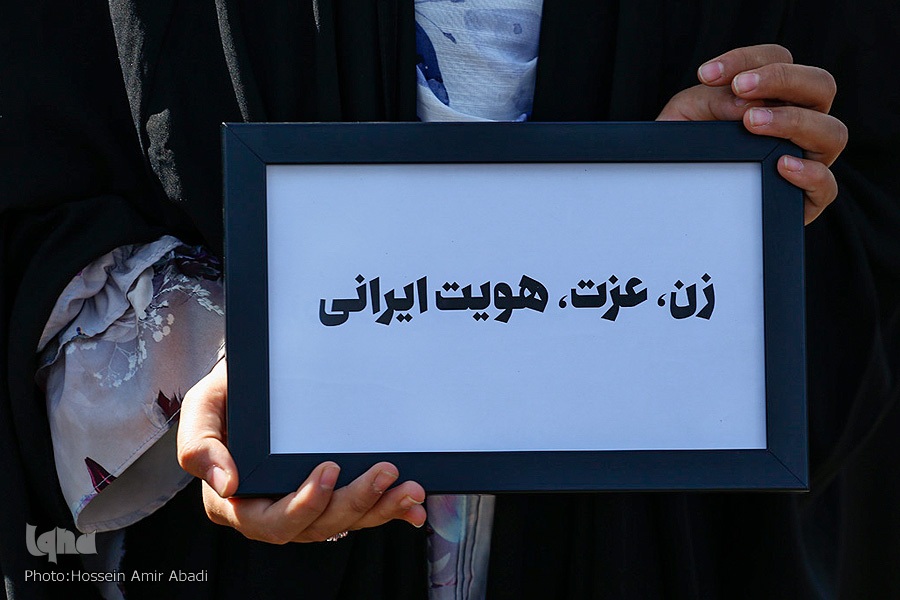 زن، عزت، هویت ایرانی
iqna
Photo:Hossein Amir Abadi